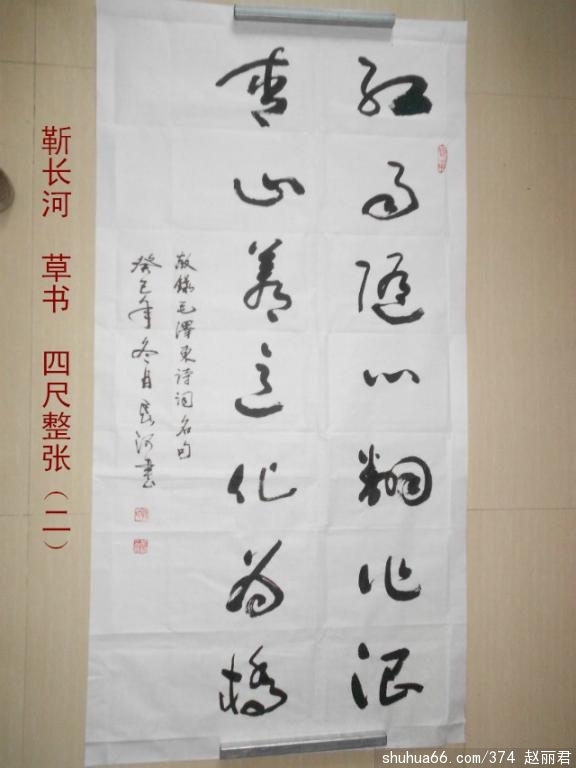 红雨随心翻作浪
青山着意化为桥
敬录毛澤東诗词名句
癸巳年冬月長河書
靳长河 草书 四尺整张（二）
shuhua66.com/374 赵丽君